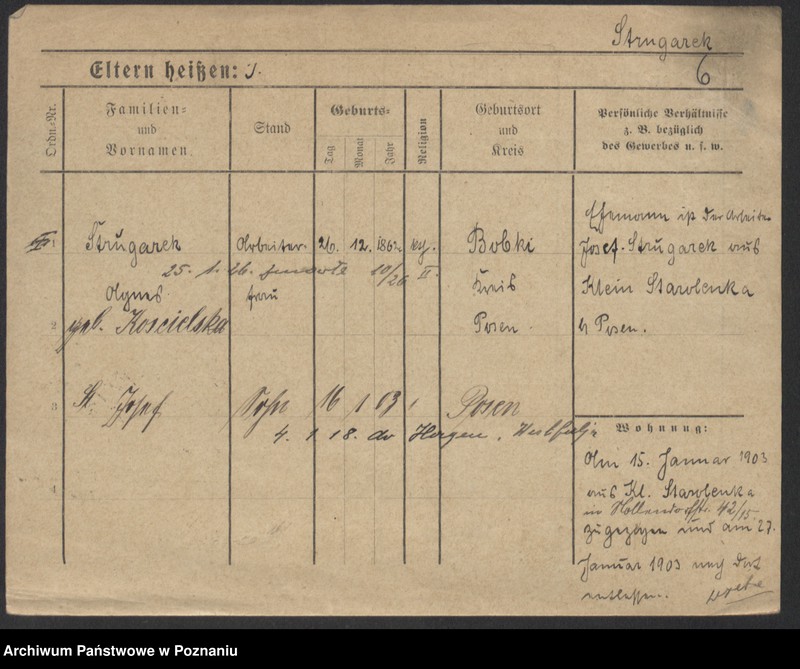 Strugarek
6
Eltern heißen:
Ordn.-Nr.
Familien-
und
Vornamen
Stand
Geburts-
Tag
Monat
Jahr
Religion
Geburtsort
und
Kreis
Persönliche Verhältnisse
z. B. bezüglich
des Gewerbes u. s. w.
Strugarek Arbeiter- 26. 12. 1862 Bobki
25. 1. 26. 10/26 II.
Agnes frau Kreis
2 geb. Koscielska Posen
Ehemann ist der Arbeiter
Josef Strugarek aus
Klein Starolenka
b Posen.
3 St. Josef Sohn 16 1 03 Posen
4. 1. 18. Hagen, Westfalen
4
Wohnung:
Am 15. Januar 1903
aus Kl. Starolenka
in 42/15
zugezogen und am 27.
Januar 1903 nach dort
entlassen.
Archiwum Państwowe w Poznaniu